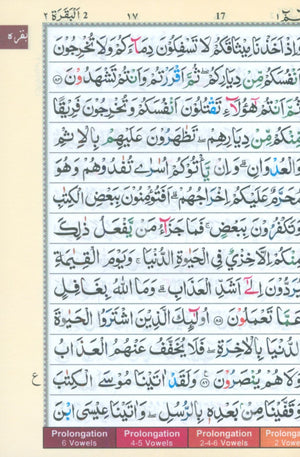 ٢ اَلْبَقَرَة 2 ١٧ 17 ١
بقره
وَاِذْ اَخَذْنَا مِيْثَاقَكُمْ لَا تَسْفِكُوْنَ دِمَآءَكُمْ وَلَا تُخْرِجُوْنَ
اَنْفُسَكُمْ مِّنْ دِيَارِكُمْ ثُمَّ اَقْرَرْتُمْ وَاَنْتُمْ تَشْهَدُوْنَ ۝٨٤
ثُمَّ اَنْتُمْ هٰٓؤُلَآءِ تَقْتُلُوْنَ اَنْفُسَكُمْ وَتُخْرِجُوْنَ فَرِيْقًا
مِّنْكُمْ مِّنْ دِيَارِهِمْ تَظٰهَرُوْنَ عَلَيْهِمْ بِالْاِثْمِ
وَالْعُدْوَانِ ؕ وَاِنْ يَّاْتُوْكُمْ اُسٰرٰى تُفٰدُوْهُمْ وَهُوَ
مُحَرَّمٌ عَلَيْكُمْ اِخْرَاجُهُمْ ؕ اَفَتُؤْمِنُوْنَ بِبَعْضِ الْكِتٰبِ
وَتَكْفُرُوْنَ بِبَعْضٍ ۚ فَمَا جَزَآءُ مَنْ يَّفْعَلُ ذٰلِكَ
مِنْكُمْ اِلَّا خِزْيٌ فِى الْحَيٰوةِ الدُّنْيَا ۚ وَيَوْمَ الْقِيٰمَةِ
يُرَدُّوْنَ اِلٰٓى اَشَدِّ الْعَذَابِ ؕ وَمَا اللّٰهُ بِغَافِلٍ
عَمَّا تَعْمَلُوْنَ ۝٨٥ اُولٰٓئِكَ الَّذِيْنَ اشْتَرَوُا الْحَيٰوةَ
الدُّنْيَا بِالْاٰخِرَةِ ؗ فَلَا يُخَفَّفُ عَنْهُمُ الْعَذَابُ
وَلَا هُمْ يُنْصَرُوْنَ ۝٨٦ وَلَقَدْ اٰتَيْنَا مُوْسَى الْكِتٰبَ
ع
وَقَفَّيْنَا مِنْۢ بَعْدِهٖ بِالرُّسُلِ ؗ وَاٰتَيْنَا عِيْسَى ابْنَ
Prolongation Prolongation Prolongation Prolonga
6 Vowels 4-5 Vowels 2-4-6 Vowels 2 Vowe